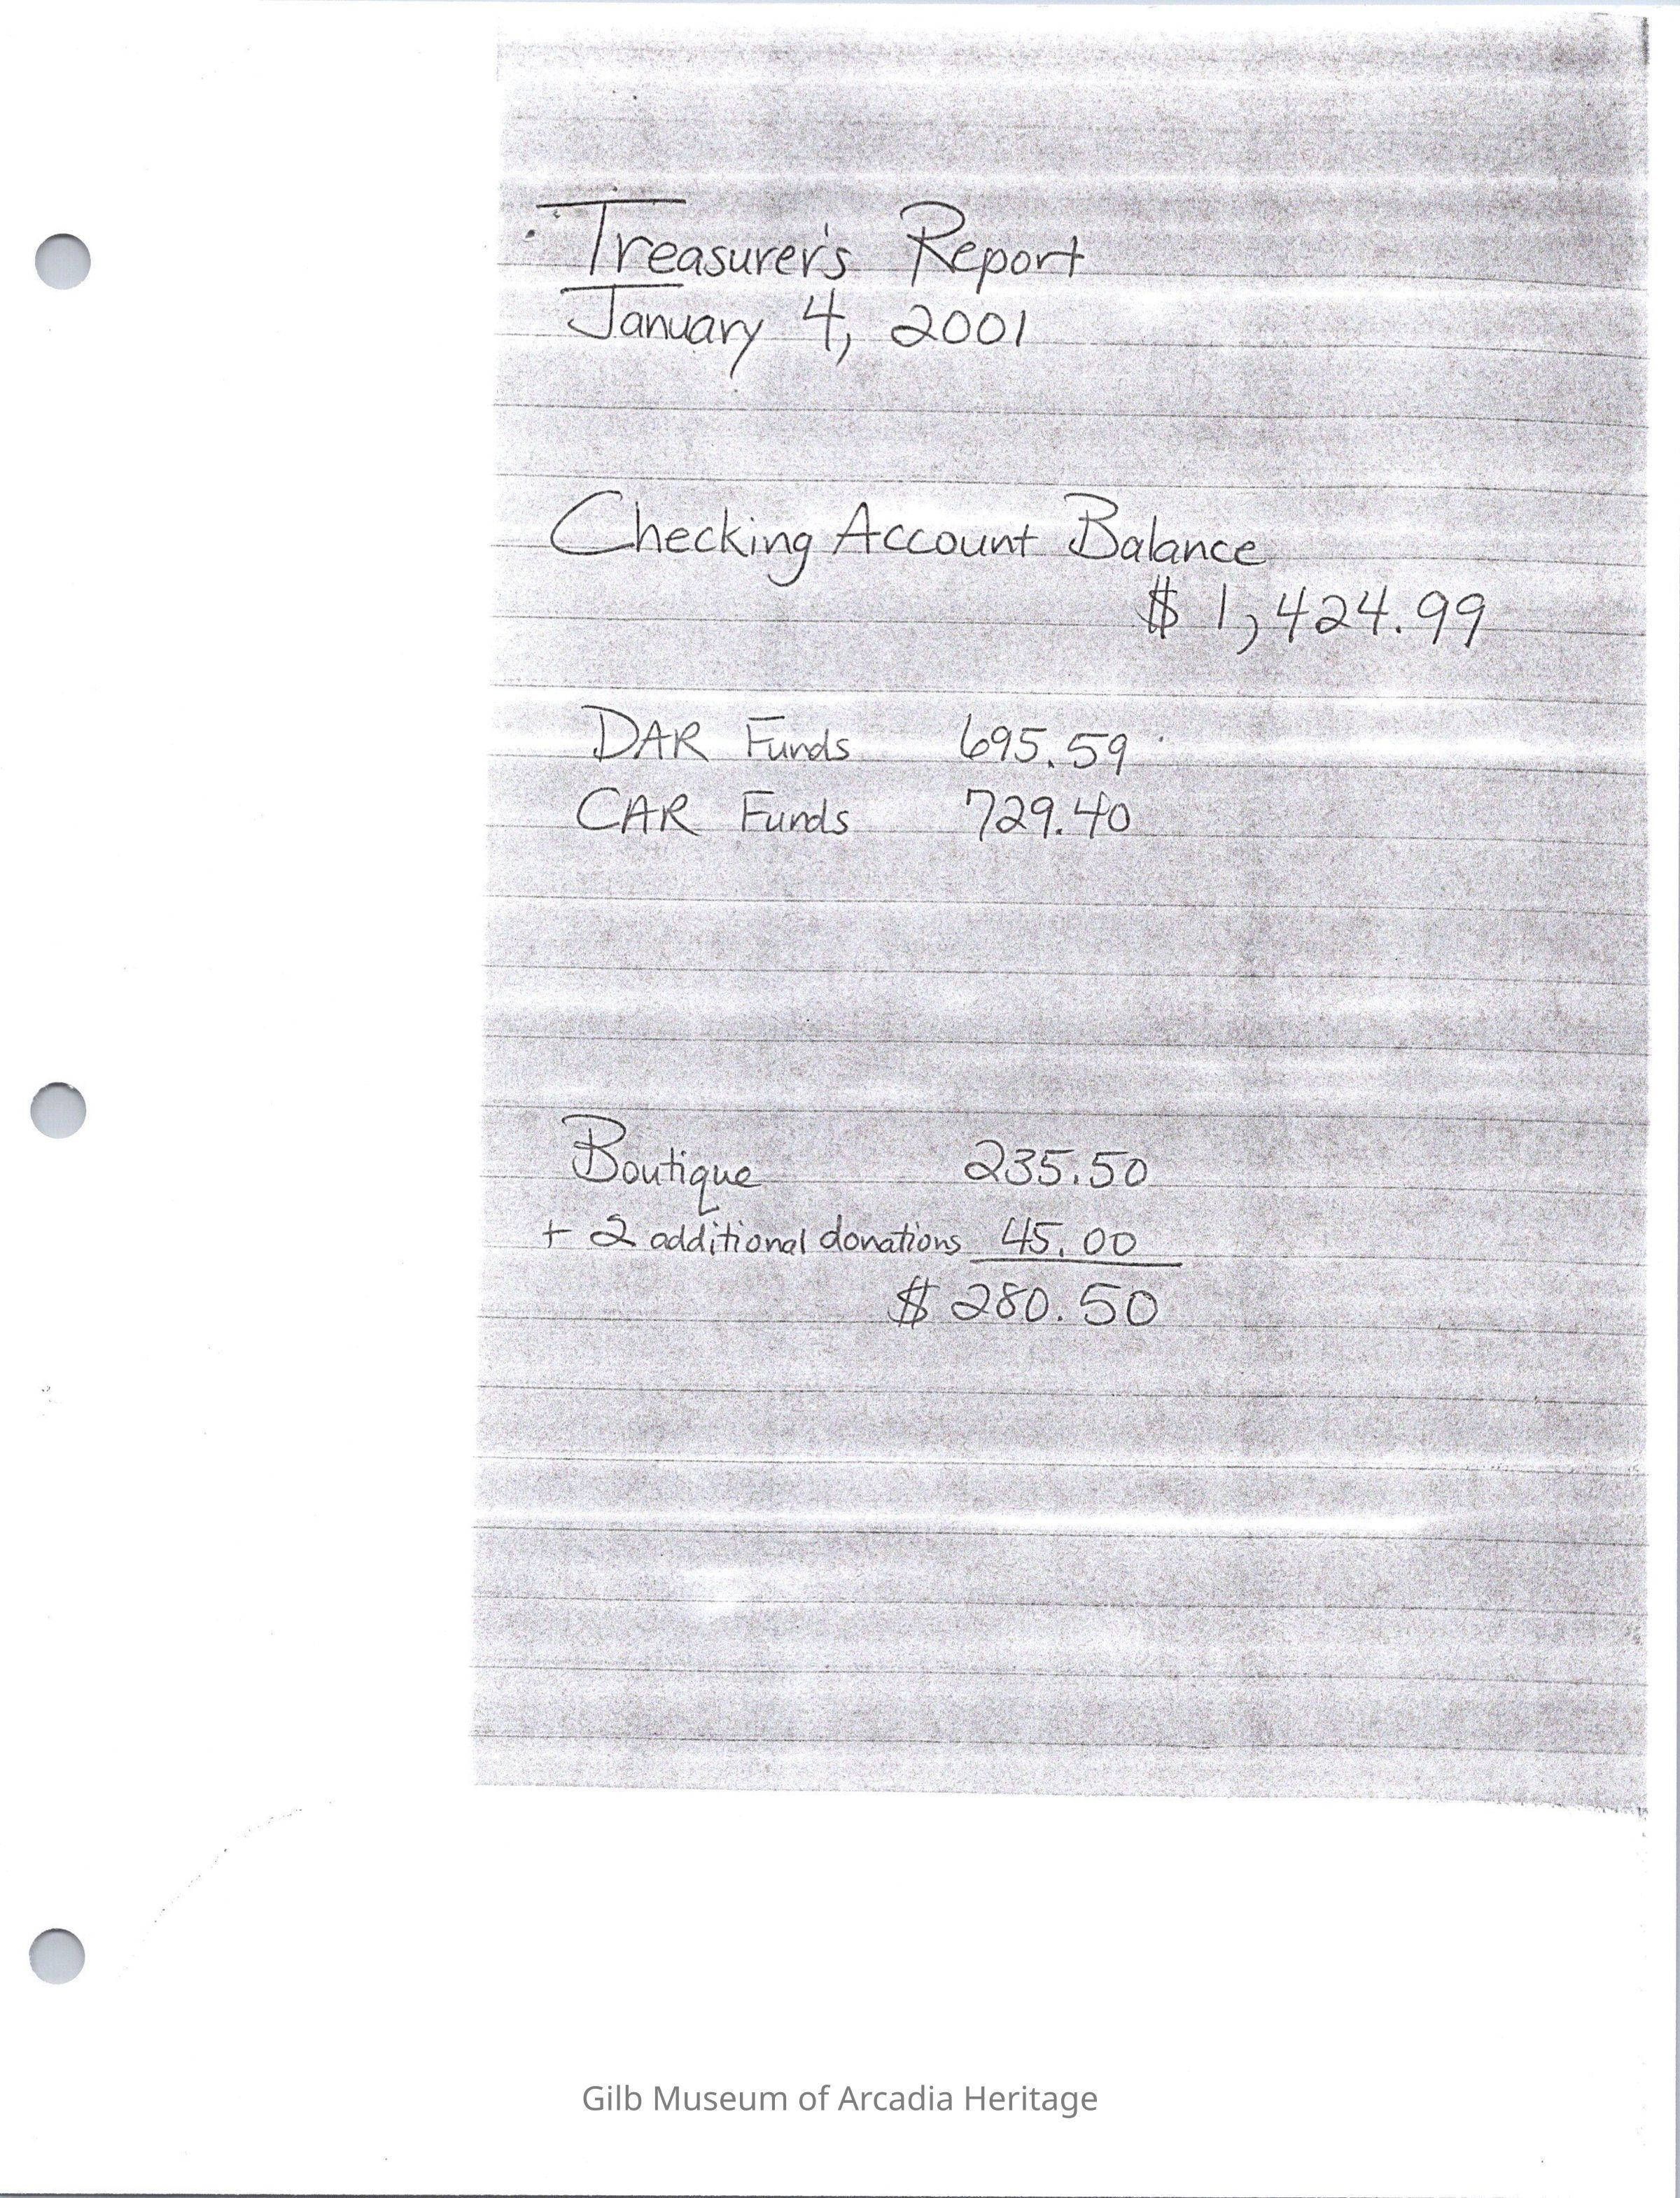 Treasurer's Report
January 4, 2001
Checking Account Balance
$ 1,424.99
DAR Funds 695.59
CAR Funds 729.40
Boutique 235.50
+ 2 additional donations 45.00
$ 280.50
Gilb Museum of Arcadia Heritage